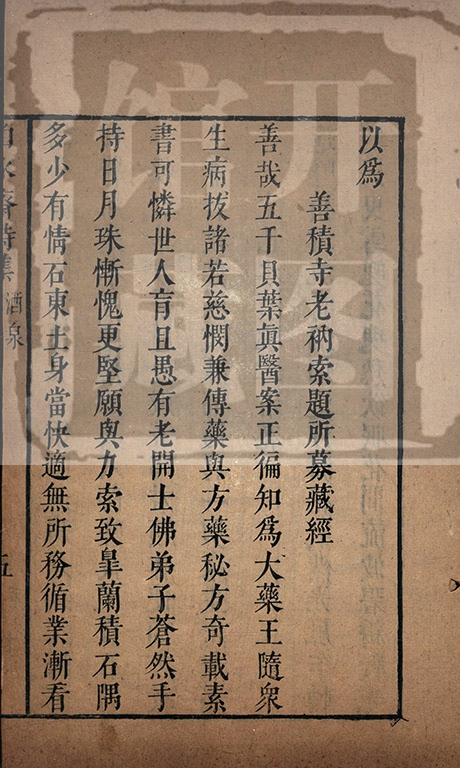 以為
善積寺老衲索題所募藏經
善哉五千貝葉眞醫案正徧知為大藥王隨衆
生病拔諸苦慈憫兼傳藥與方藥秘方奇載素
書可憐世人盲且愚有老開士佛弟子蒼然手
持日月珠慚愧更堅願與力索致臯蘭積石隅
多少有情石東土身當快適無所務循業漸看
酒泉
五
开图